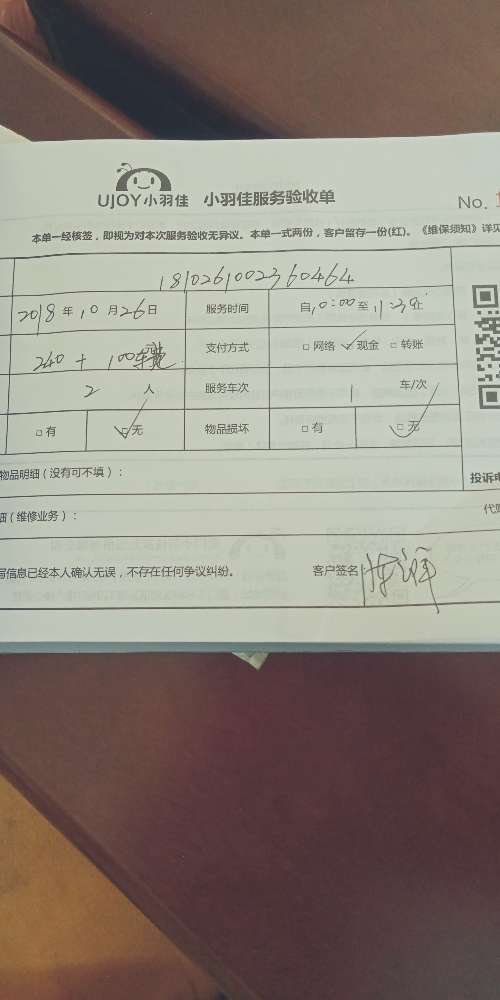 UJOY小羽佳 小羽佳服务验收单
No. 1
本单一经核签，即视为对本次服务验收无异议。本单一式两份，客户留存一份(红)。《维保须知》详见
1810261002360464
2018年10月26日 服务时间 自10:00至11:39止
240 + 100车费 支付方式 □网络 ✓现金 □转账
2人 服务车次 1车/次
□有 ✓□无 物品损坏 □有 ✓□无
物品明细（没有可不填）：
投诉电
细（维修业务）：
写信息已经本人确认无误，不存在任何争议纠纷。 客户签名